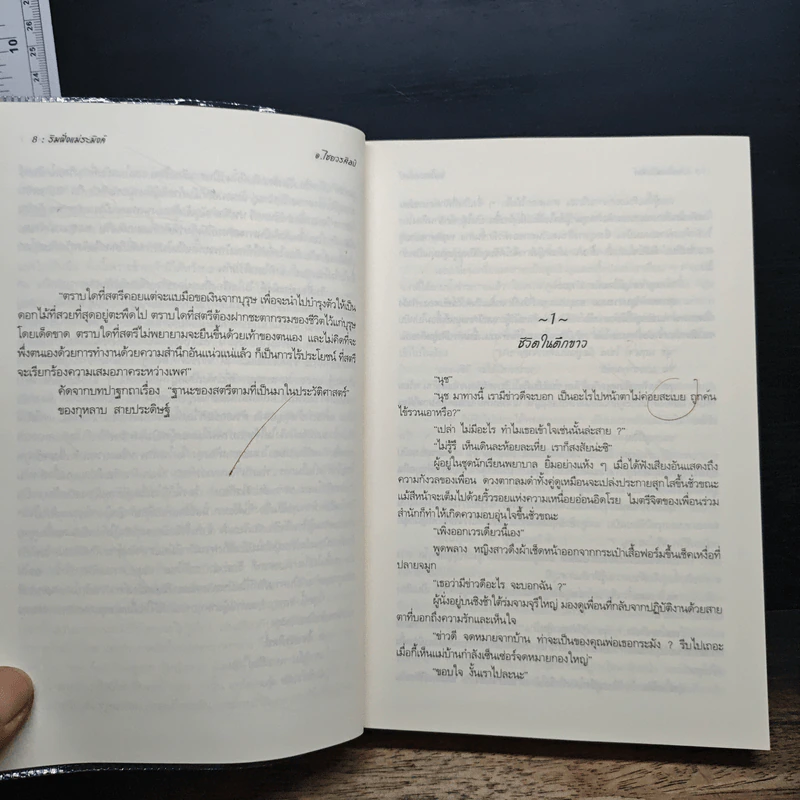 10
26
25
24
8 : ริมฝั่งแม่ระมิงค์
อ.ไชยวรศิลป์
"ตราบใดที่สตรีคอยแต่จะแบมือขอเงินจากบุรุษ เพื่อจะนำไปบำรุงตัวให้เป็น
ดอกไม้ที่สวยที่สุดอยู่ตะพืดไป ตราบใดที่สตรีต้องฝากชะตากรรมของชีวิตไว้แก่บุรุษ
โดยเด็ดขาด ตราบใดที่สตรีไม่พยายามจะยืนขึ้นด้วยเท้าของตนเอง และไม่คิดที่จะ
พึ่งตนเองด้วยการทำงานด้วยความสำนึกอันแน่วแน่แล้ว ก็เป็นการไร้ประโยชน์ ที่สตรี
จะเรียกร้องความเสมอภาคระหว่างเพศ"
คัดจากบทปาฐกถาเรื่อง "ฐานะของสตรีตามที่เป็นมาในประวัติศาสตร์"
ของกุหลาบ สายประดิษฐ์
~1~
ชีวิตในตึกขาว
"นุช"
"นุช มาทางนี้ เรามีข่าวดีจะบอก เป็นอะไรไปหน้าตาไม่ค่อยสะเบย ถูกคัน
ไข้รวนเอาหรือ?"
"เปล่า ไม่มีอะไร ทำไมเธอเข้าใจเช่นนั้นล่ะสาย ?"
"ไม่รู้รึ เห็นเดินละห้อยละเหี่ย เราก็สงสัยน่ะซิ"
ผู้อยู่ในชุดนักเรียนพยาบาล ยิ้มอย่างแห้ง ๆ เมื่อได้ฟังเสียงอันแสดงถึง
ความกังวลของเพื่อน ดวงตากลมดำทั้งคู่ดูเหมือนจะเปล่งประกายสุกใสขึ้นชั่วขณะ
แม้สีหน้าจะเต็มไปด้วยริ้วรอยแห่งความเหนื่อยอ่อนอิดโรย ไมตรีจิตของเพื่อนร่วม
สำนักก็ทำให้เกิดความอบอุ่นใจขึ้นชั่วขณะ
"เพิ่งออกเวรเดี๋ยวนี้เอง"
พูดพลาง หญิงสาวดึงผ้าเช็ดหน้าออกจากกระเป๋าเสื้อฟอร์มขึ้นเช็ดเหงื่อที่
ปลายจมูก
"เธอว่ามีข่าวดีอะไร จะบอกฉัน ?"
ผู้นั่งอยู่บนชิงช้าใต้ร่มจามจุรีใหญ่ มองดูเพื่อนที่กลับจากปฏิบัติงานด้วยสาย
ตาที่บอกถึงความรักและเห็นใจ
"ข่าวดี จดหมายจากบ้าน ท่าจะเป็นของคุณพ่อเธอกระมัง ? รีบไปเถอะ
เมื่อกี้เห็นแม่บ้านกำลังเซ็นเซ่อร์จดหมายกองใหญ่"
"ขอบใจ งั้นเราไปละนะ"